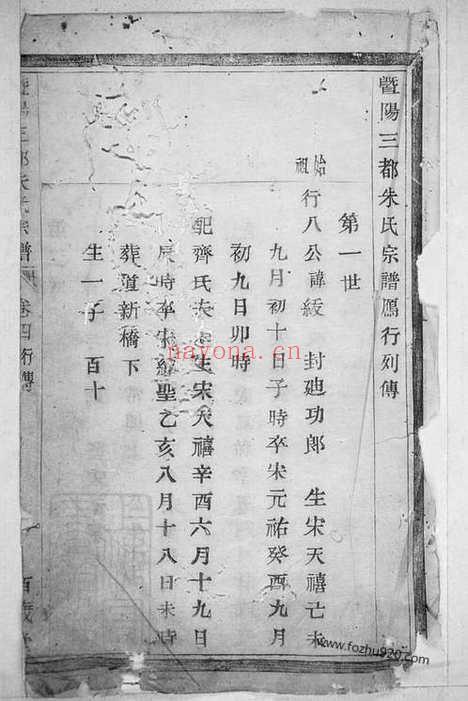 暨陽三都朱氏宗譜鴈行列傳
第一世
始祖 行八公諱綬 封廸功郎 生宋天禧己未
九月初十日子時卒宋元祐癸酉九月
初九日卯時
配齊氏夫人生宋天禧辛酉六月十九日
辰時卒宋紹聖乙亥八月十八日未時
葬道新橋下
生一子 百十
暨陽三都朱氏宗譜 卷四行傳
nayona.cn
www.fozhu920.com